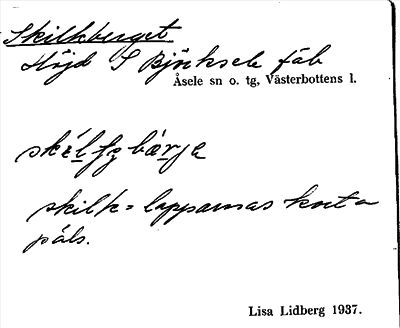 Skilkberget
Höjd S Björksele fäb
Åsele sn o. tg, Västerbottens l.
skilk = lapparnas korta
päls.
Lisa Lidberg 1937.